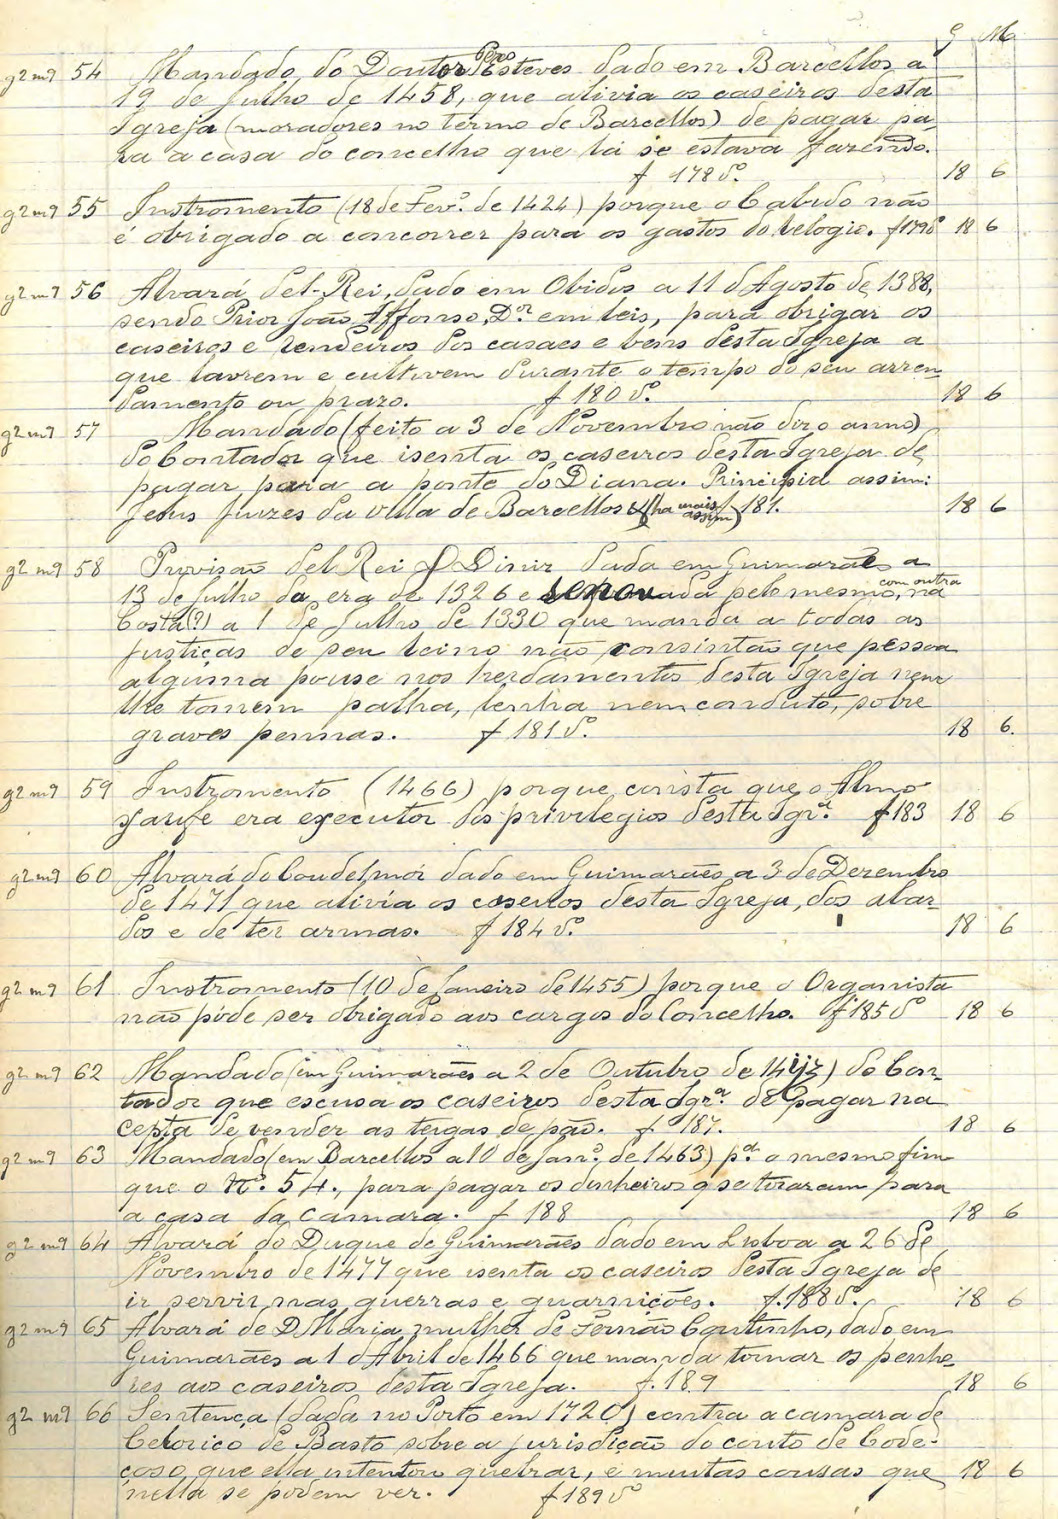 G M.
g2 m9 54 Mandado do Doutor Pero Esteves dado em Barcellos a
19 de Julho de 1458, que alivia os caseiros desta
Igreja (moradores no termo de Barcellos) de pagar pa-
ra a casa do concelho que lá se estava fazendo.
f 178 v.º 18 6
g2 m9 55 Instromento (18 de Fev.º de 1424) porque o Cabido não
é obrigado a concorrer para os gastos do relogio. f 179 v.º 18 6
g2 m9 56 Alvará del-Rei, dado em Obidos a 11 d'Agosto de 1388,
sendo Prior João Affonso, D.or em leis, para obrigar os
caseiros e rendeiros dos casaes e bens desta Igreja a
que lavrem e cultivem durante o tempo do seu arren-
damento ou prazo. f 180 v.º 18 6
g2 m9 57 Mandado (feito a 3 de Novembro não diz o anno)
do Contador que isenta os caseiros desta Igreja de
pagar para a ponte do Diana. Principia assim:
Jesus Juizes da villa de Barcellos & (ha mais assim) 181. 18 6
g2 m9 58 Provisão del Rei D Diniz dada em Guimarães a
13 de Julho da era de 1326 e renovada pelo mesmo, com outra na
Costa (?) a 1 de Julho de 1330 que manda a todas as
justiças de seu reino não consintão que pessoa
alguma pouse nos herdamentos desta Igreja nem
lhe tomem palha, lenha nem conduto, sobre
graves pennas. f 181 v.º 18 6.
g2 m9 59 Instromento (1466) porque consta que o Almo-
xarife era executor dos privilegios desta Igr.ª f 183 18 6
g2 m9 60 Alvará do Coudelmór dado em Guimarães a 3 de Dezembro
de 1471 que alivia os caseiros desta Igreja, dos alar-
dos e de ter armas. f 184 v.º 18 6
g2 m9 61 Instromento (10 de Janeiro de 1455) porque o Organista
não póde ser obrigado aos cargos do Concelho. f 185 v 18 6
g2 m9 62 Mandado (em Guimarães a 2 de Outubro de ) do Con-
tador que escusa os caseiros desta Igr.ª de pagar na
de vender as teigas de pão. f 187. 18 6
g2 m9 63 Mandado (em Barcellos a 10 de Jan.º de 1463) p.ª o mesmo fim
que o N.º 54., para pagar os dinheiros q se tiraram para
a casa da Camara. f 188 18 6
g2 m9 64 Alvará do Duque de Guimarães dado em Lisboa a 26 de
Novembro de 1477 que isenta os caseiros desta Igreja de
ir servir nas guerras e guarnições. f. 188 v. 18 6
g2 m9 65 Alvará de D Maria, mulher de Fernão Coutinho, dado em
Guimarães a 1 d'Abril de 1466 que manda tornar os penho-
res aos caseiros desta Igreja. f. 189 18 6
g2 m9 66 Sentença (dada no Porto em 1720) contra a camara de
Celorico de Basto sobre a jurisdição do couto de Code-
çoso, que ella intentou quebrar, e muitas cousas que 18 6
nella se podem ver. f 189 v.º